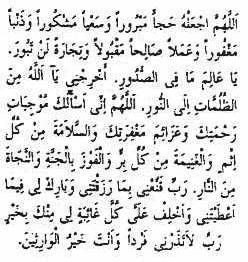 اَللّٰهُمَّ اجْعَلْهُ حَجاًّ مَبْرُوراً وَسَعْياً مَشْكُوراً وَذَنْباً
مَغْفُوراً وَعَمَلاً صَالِحاً مَقْبُولاً وَتِجَارَةً لَنْ تَبُورَ.
يَا عَالِمَ مَا فِى الصُّدُورِ. اَخْرِجْنِي يَآ اَللّٰهُ مِنَ
الظُّلُمَاتِ اِلَى النُّورِ. اَللّٰهُمَّ اِنِّى اَسْاَلُكَ مُوجِبَاتِ
رَحْمَتِكَ وَعَزَائِمَ مَغْفِرَتِكَ وَالسَّلاَمَةَ مِنْ كُلِّ
اِثْمٍ. وَالْغَنِيمَةَ مِنْ كُلِّ بِرٍّ وَالْفَوْزَ بِالْجَنَّةِ وَالنَّجَاةَ
مِنَ النَّارِ. رَبِّ قَنِّعْنِى بِمَا رَزَقْتَنِى وَبَارِكْ لِى فِيمَا
اَعْطَيْتَنِى وَاخْلِفْ عَلَى كُلِّ غَائِبَةٍ لِى مِنْكَ بِخَيْرٍ
رَبِّ لاَتَذَرْنِى فَرْداً وَاَنْتَ خَيْرُ الْوَارِثِينَ.